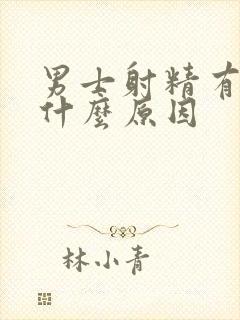 男士射精有
什麼原因
林小青